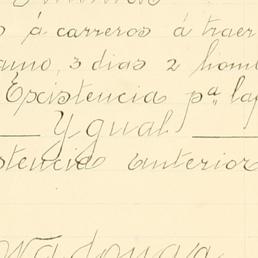 s á carreros á traer
amo, 3 dias 2 hom
Existencia pª la
Ygual
stencia anterior